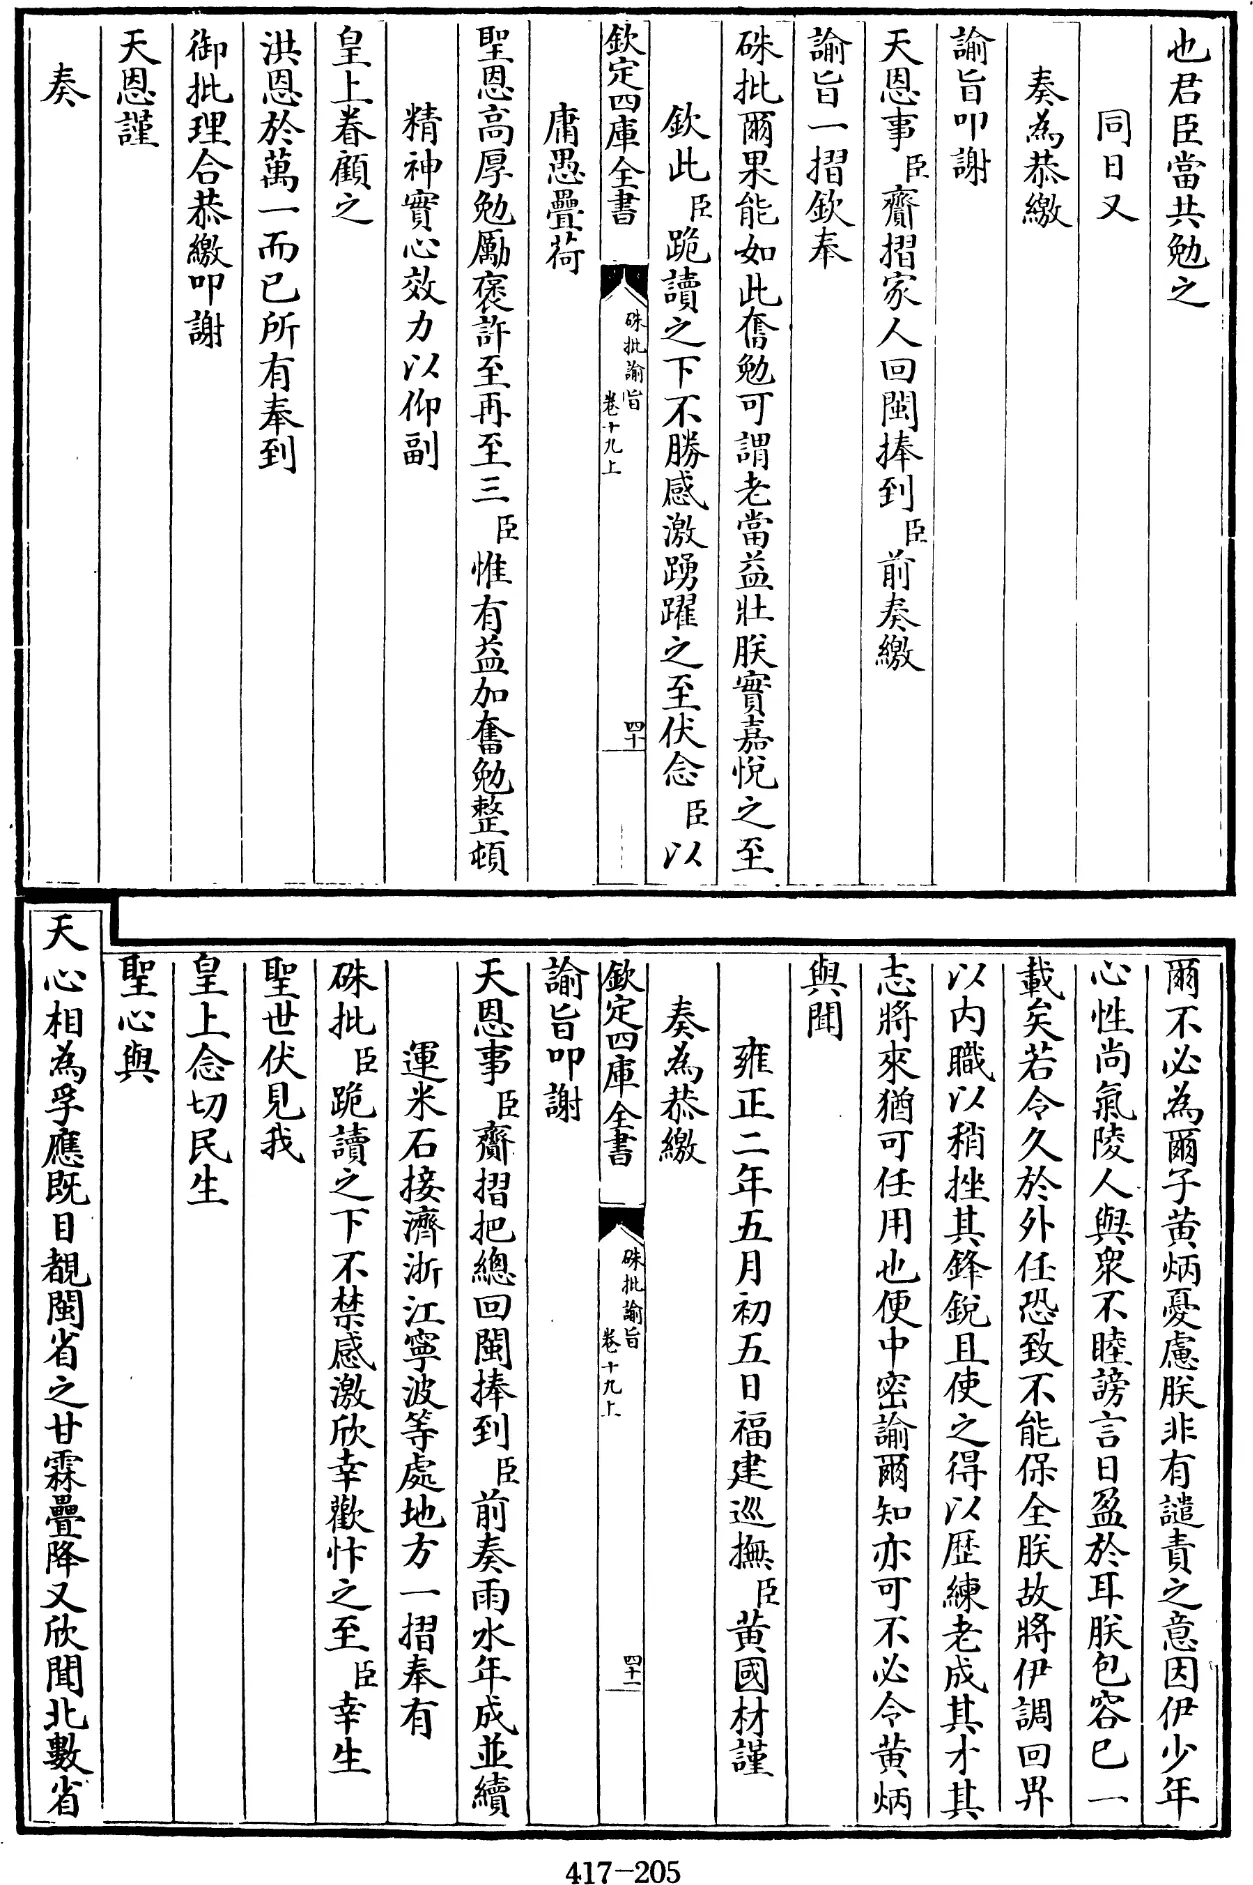 也君臣當共勉之
同日又
奏為恭繳
諭旨叩謝
天恩事臣齎摺家人回閩捧到臣前奏繳
諭旨一摺欽奉
硃批爾果能如此奮勉可謂老當益壯朕實嘉悅之至
欽此臣跪讀之下不勝感激踴躍之至伏念臣以
欽定四庫全書
硃批諭旨
卷十九上
四十
庸愚疊荷
聖恩高厚勉勵褒許至再至三臣惟有益加奮勉整頓
精神實心效力以仰副
皇上眷顧之
洪恩於萬一而已所有奉到
御批理合恭繳叩謝
天恩謹
奏
爾不必為爾子黄炳憂慮朕非有譴責之意因伊少年
心性尚氣陵人與衆不睦謗言日盈於耳朕包容已一
載矣若令久於外任恐致不能保全朕故將伊調回畀
以内職以稍挫其鋒銳且使之得以歷練老成其才其
志將來猶可任用也便中密諭爾知亦可不必令黄炳
與聞
雍正二年五月初五日福建巡撫臣黄國材謹
奏為恭繳
欽定四庫全書
硃批諭旨
卷十九上
四十一
諭旨叩謝
天恩事臣齎摺把總回閩捧到臣前奏雨水年成並續
運米石接濟浙江寧波等處地方一摺奉有
硃批臣跪讀之下不禁感激欣幸歡忭之至臣幸生
聖世伏見我
皇上念切民生
聖心與
天心相為孚應既目覩閩省之甘霖疊降又欣聞北數省
417-205